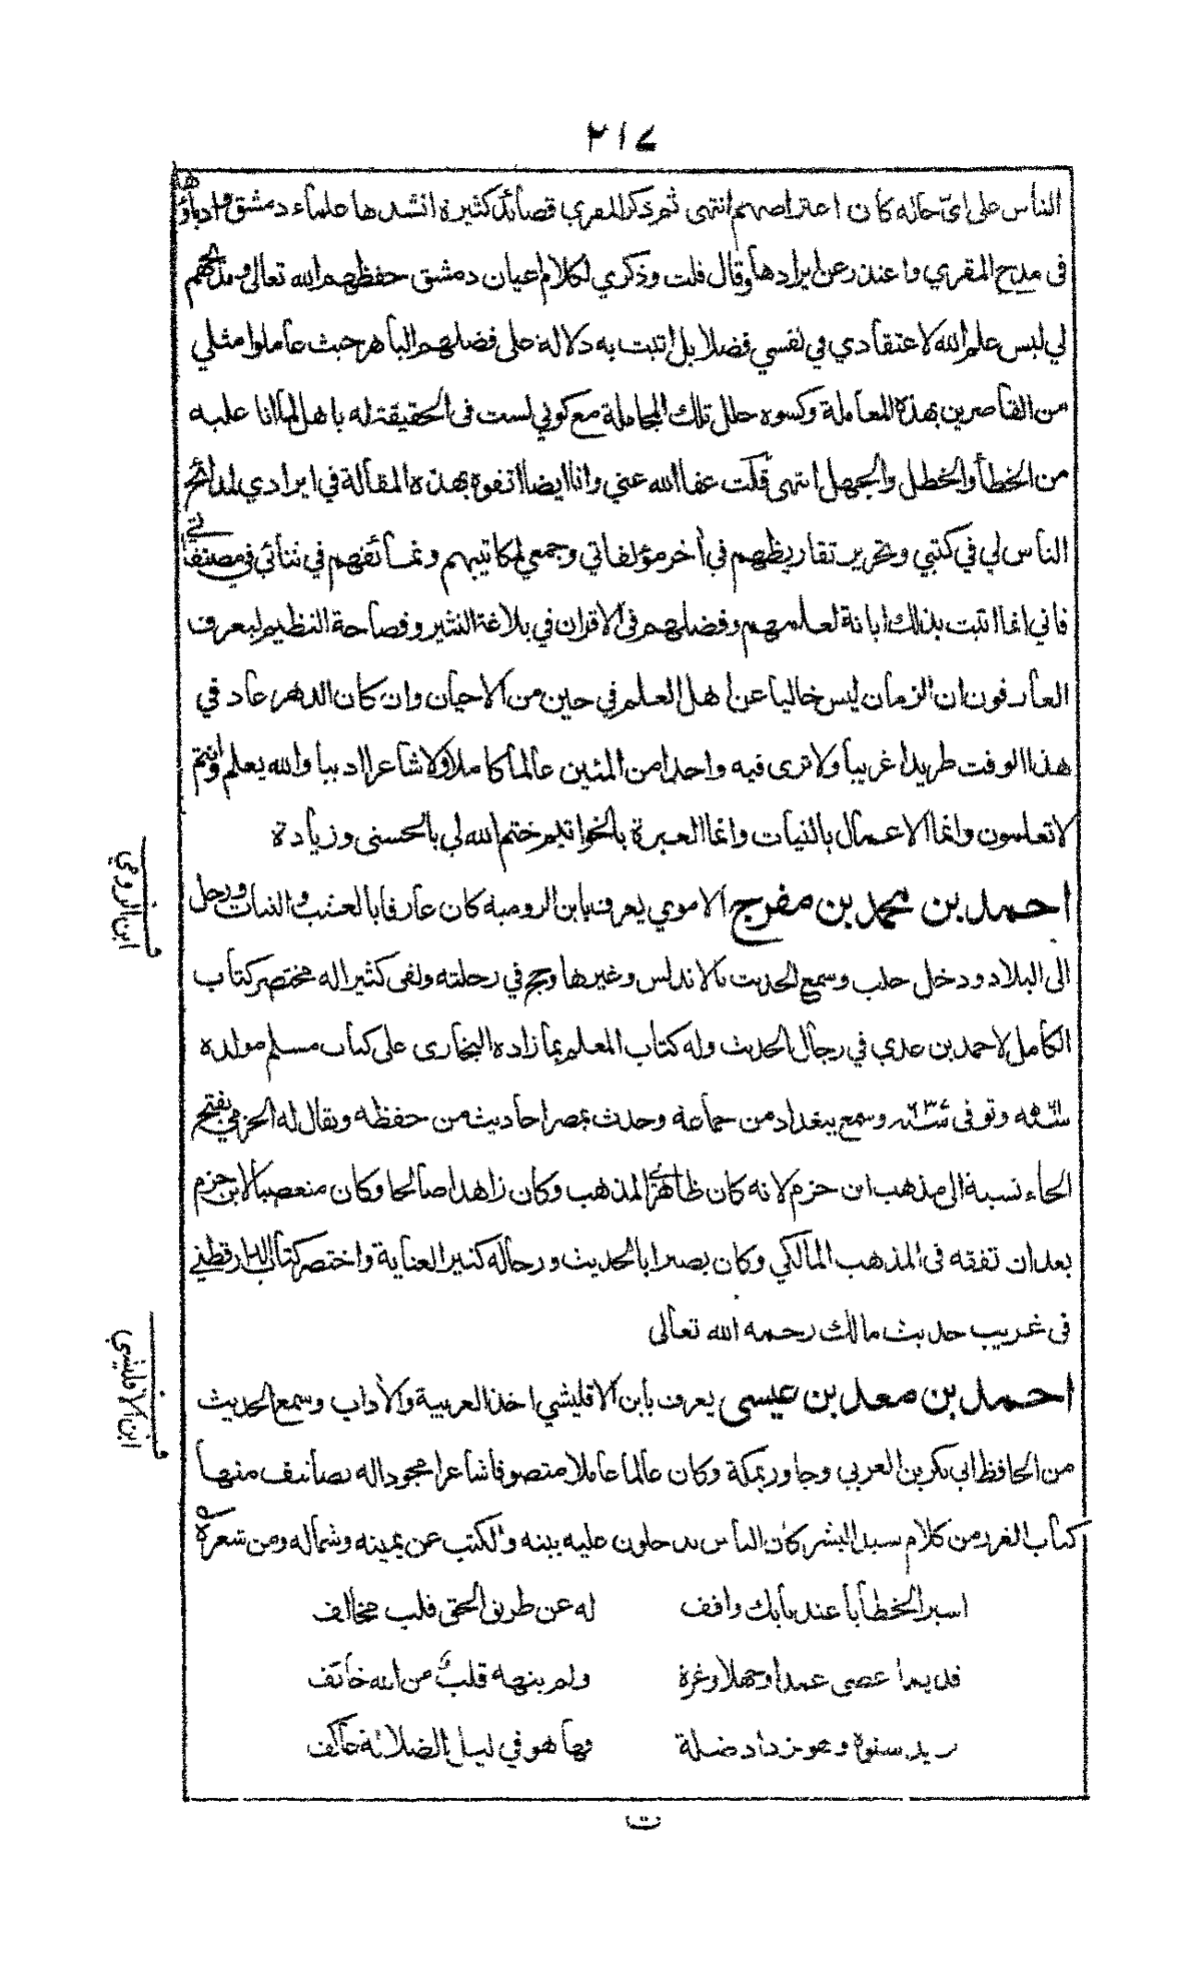 ٢١٧
الناس على اىّ حالة كان اعتراضهم انتهى ثم ذكر المقري قصائد كثيرة انشدها علماء دمشق وادباؤها
فى مدح المقري واعتذر عن ايرادها وقال قلت وذكري لكلام اعيان دمشق حفظهم الله تعالى ومدائحهم
لي ليس علم الله لاعتقادي في نفسي فضلا بل اتيت به دلالة على فضلهم الباهر حيث عاملوا مثلي
من القاصرين بهذه المعاملة وكسوه حلل تلك المجاملة مع كوني لست فى الحقيقة له باهل لما انا عليه
من الخطأ والخطل والجهل انتهى قلت عفا الله عني وانا ايضا اتفوه بهذه المقالة في ايرادي لمدائح
الناس لي في كتبي وتحرير تقاريظهم في آخر مؤلفاتي وجمعي لمكاتيبهم ونمائقهم في ثنائي في مصنفاتي
فاني انما اتيت بذلك ابانة لعلمهم وفضلهم فى الاقران في بلاغة النثير وفصاحة النظيم ليعرف
العارفون ان الزمان ليس خاليا عن اهل العلم في حين من الاحيان وان كان الدهر عاد في
هذا الوقت طريدا غريبا ولا ترى فيه واحدا من المئين عالما كاملا ولا شاعرا اديبا والله يعلم وانتم
لا تعلمون وانما الاعمال بالنيات وانما العبرة بالخواتيم ختم الله لي بالحسنى وزيادة
احمد بن محمد بن مفرج الاموي يعرف بابن الرومية كان عارفا بالعشب والنبات ورحل
الى البلاد ودخل حلب وسمع الحديث بالاندلس وغيرها وحج في رحلته ولقى كثيرا له مختصر كتاب
الكامل لاحمد بن عدي في رجال الحديث وله كتاب المعلم بما زاده البخارى على كتاب مسلم مولده
سنة ٥٦١ه وتوفى سنة ٦٣٧ وسمع ببغداد من جماعة وحدث بمصر احاديث من حفظه ويقال له الحزمي بفتح
الحاء نسبة الى مذهب ابن حزم لانه كان ظاهرى المذهب وكان زاهدا صالحا وكان متعصبا لابن حزم
بعد ان تفقه فى المذهب المالكي وكان بصيرا بالحديث ورجاله كثير العناية واختصر كتاب الدارقطني
فى غريب حديث مالك رحمه الله تعالى
احمد بن معد بن عيسى يعرف بابن الاقليشي اخذ العربية والآداب وسمع الحديث
من الحافظ ابى بكر بن العربي وجاور بمكة وكان عالما عاملا متصوفا شاعرا مجودا له تصانيف منها
كتاب الغرر من كلام سيد البشر كان الناس يدخلون عليه بيته والكتب عن يمينه وشماله ومن شعره
اسير الخطايا عند بابك واقف له عن طريق الحق قلب مخالف
قديما عصى عمدا وجهلا وغرة ولم ينهه قلبٌ من الله خائف
يزيد سنوه وهو يزداد ضلة فها هو في ليل الضلالة عاكف
ت
ابن الرومي
ابن الاقليشي